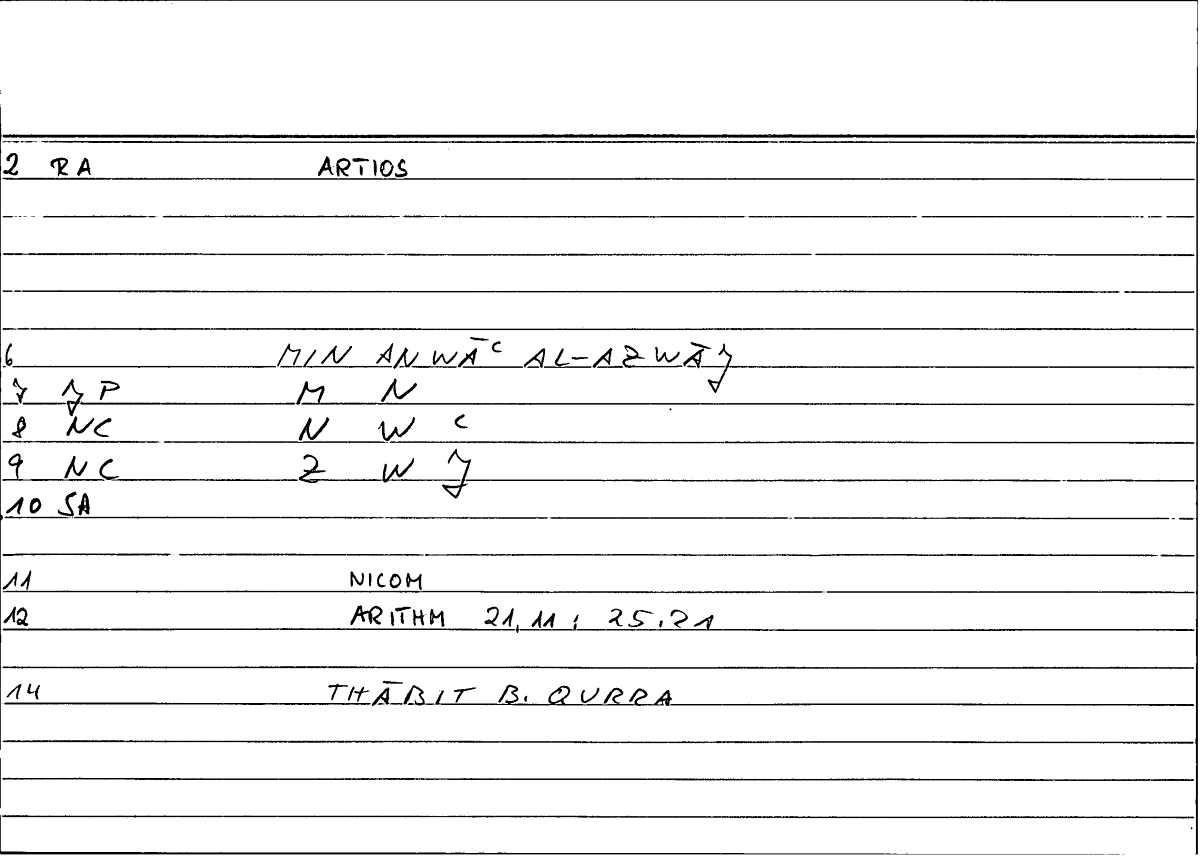 2 RA ARTIOS
6 MIN ANWĀʿ AL-AZWĀJ
7 JP M N
8 NC N W ʿ
9 NC Z W J
10 SA
11 NICOM
12 ARITHM 21,11 : 25.21
14 THĀBIT B. QURRA